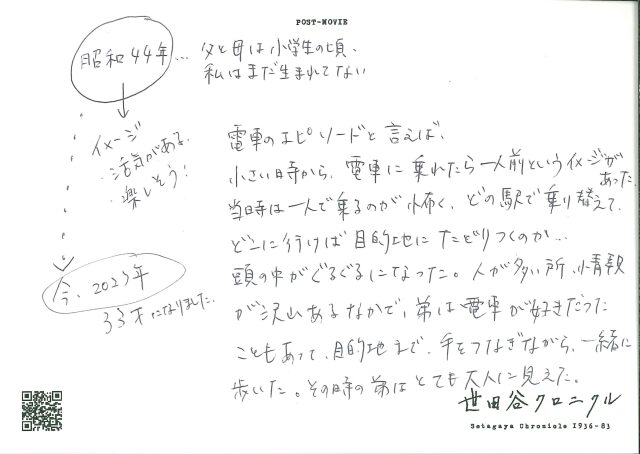 POST-MOVIE
昭和44年...
父と母は小学生の頃、
私はまだ生まれてない
イメージ
・活気がある
・楽しそう！
今、2023年
33才になりました。
電車のエピソードと言えば、
小さい時から、電車に乗れたら一人前というイメージがあった
当時は一人で乗るのが怖く、どの駅で乗り替えて、
どこに行けば目的地にたどりつくのか...
頭の中がぐるぐるになった。人が多い所、情報
が沢山あるなかで、弟は電車が好きだった
こともあって、目的地まで、手をつなぎながら、一緒に
歩いた。その時の弟はとても大人に見えた。
世田谷クロニクル
Setagaya Chronicle 1936-83